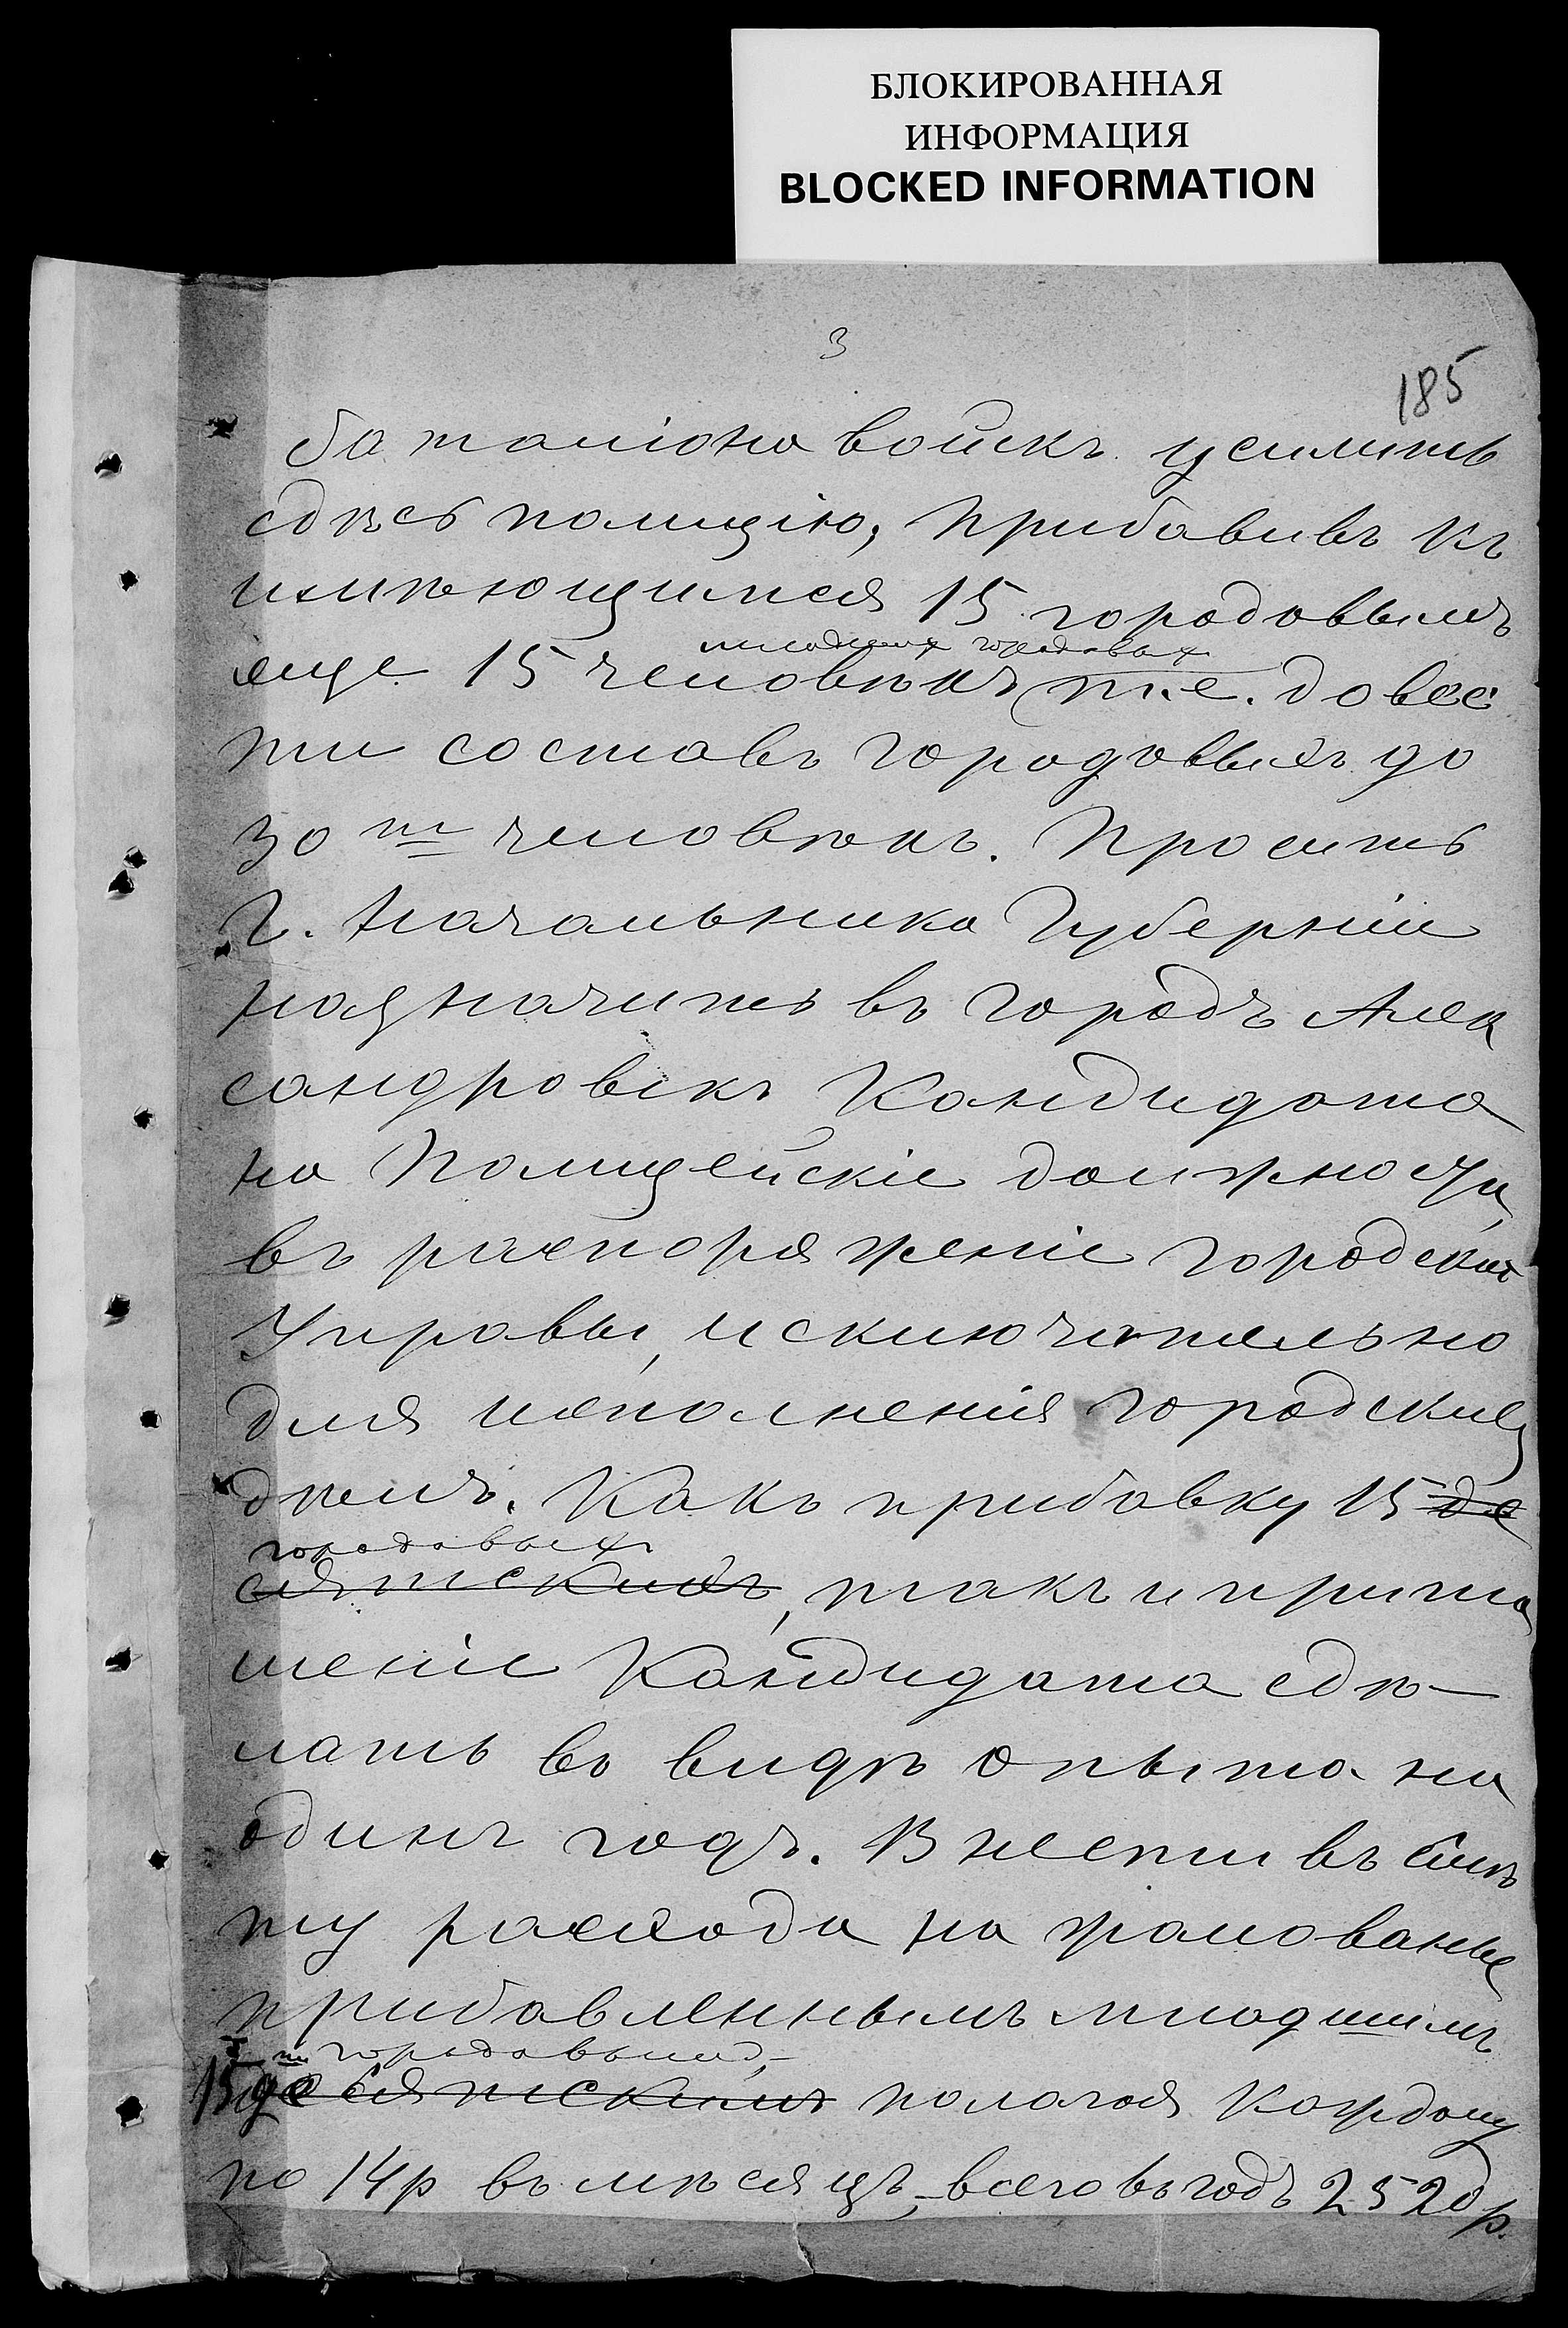 БЛОКИРОВАННАЯ
ИНФОРМАЦИЯ
BLOCKED INFORMATION
3
185
баталіона войскъ усилить
сдѣсь полицію, прибавивъ къ
имѣющимся 15 городовымъ
младшихъ городовыхъ
еще 15 человѣкъ т.е. довес
ти составъ городовыхъ до
30ти человѣкъ. Просить
Г. Начальника Губерніи
назначить въ городъ Алек
сандровскъ Кандидата
на Полицейскіе должности,
въ распоряженіе городской
Управы, исключительно
для исполненія городскихъ
дѣлъ. Какъ прибавку 15 де
городовыхъ
сятскихъ, такъ и пригла
шеніе Кандидата сдѣ-
лать въ видѣ опыта на
одинъ годъ. Внести въ смѣ
ту расхода на жалованье
прибавленнымъ младшимъ
ти городовымъ,
15 десятскимъ полагая каждому
по 14 р въ мѣсяцъ, всего въ годъ 2520 р.